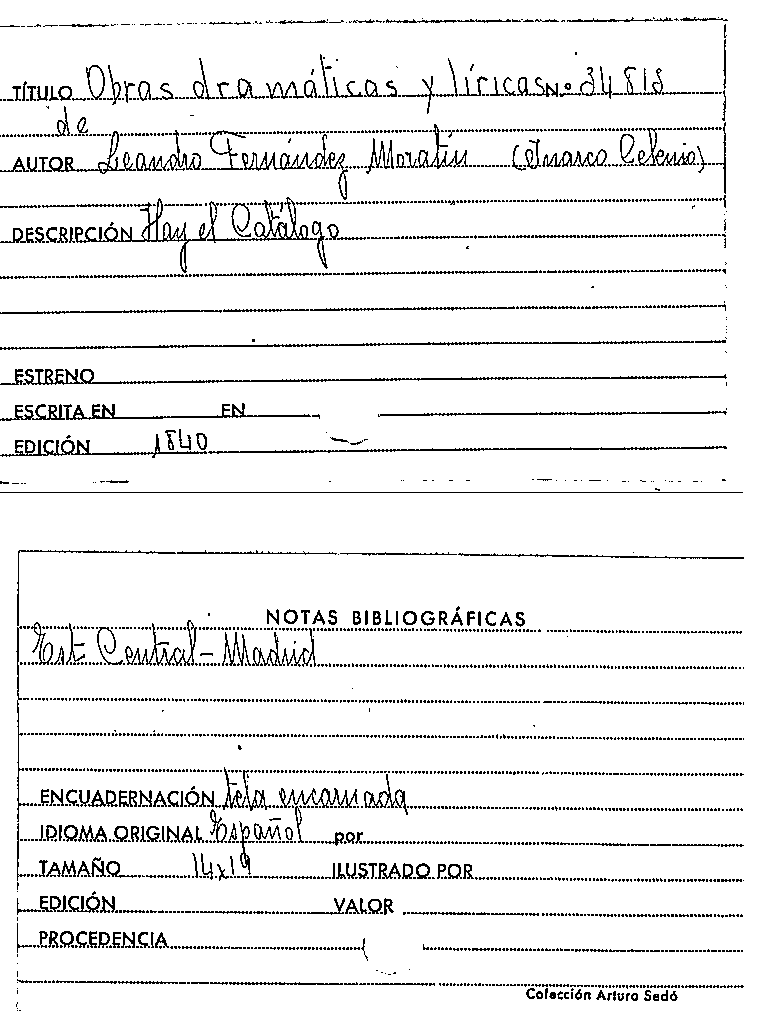 TÍTULO Obras dramáticas y líricas Nº 34818
de
AUTOR Leandro Fernández Moratín (Inarco Celenio)
DESCRIPCIÓN Hay el Catálogo
ESTRENO
ESCRITA EN EN
EDICIÓN 1840
NOTAS BIBLIOGRÁFICAS
Est Central - Madrid
ENCUADERNACIÓN tela encarnada
IDIOMA ORIGINAL Español por
TAMAÑO 14x19 ILUSTRADO POR
EDICIÓN VALOR
PROCEDENCIA
Colección Arturo Sedó